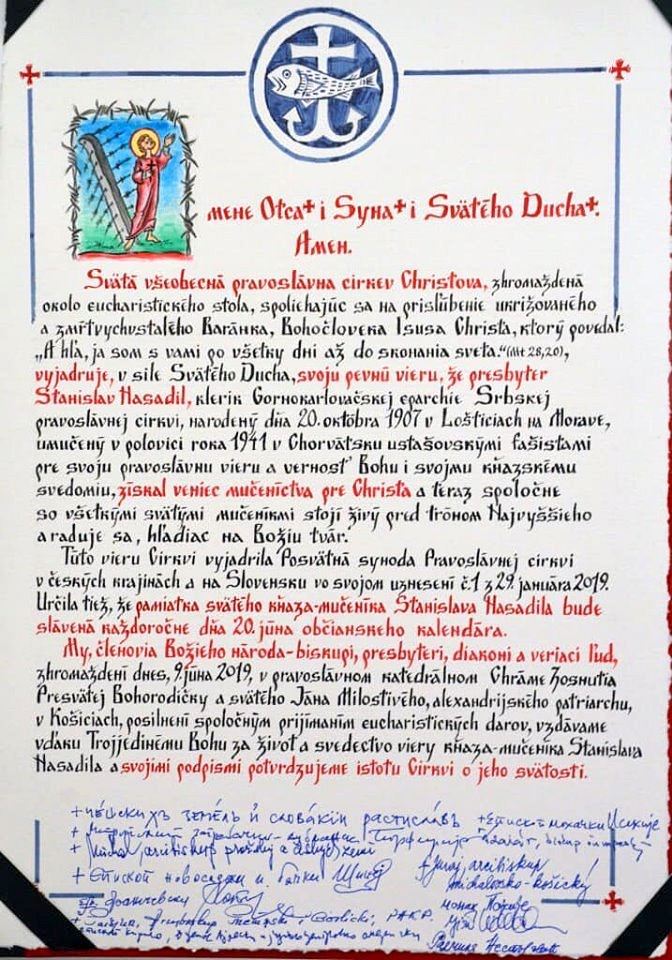 mene Otca+ i Syna+ i Svätého Ducha+.
Amen.
Svätá všeobecná pravoslávna cirkev Christova, zhromaždená
okolo eucharistického stola, spoliehajúc sa na prisľúbenie ukrižovaného
a zmŕtvychvstalého Baránka, Bohočloveka Isusa Christa, ktorý povedal:
„A hľa, ja som s vami po všetky dni až do skonania sveta.“ (Mt 28,20),
vyjadruje, v sile Svätého Ducha, svoju pevnú vieru, že presbyter
Stanislav Nasadil, klerik Gornokarlovačskej eparchie Srbskej
pravoslávnej cirkvi, narodený dňa 20. októbra 1907 v Lošticiach na Morave,
umučený v polovici roka 1941 v Chorvátsku ustašovskými fašistami
pre svoju pravoslávnu vieru a vernosť Bohu i svojmu kňazskému
svedomiu, získal veniec mučeníctva pre Christa a teraz spoločne
so všetkými svätými mučeníkmi stojí živý pred trónom Najvyššieho
a raduje sa, hľadiac na Božiu tvár.
Túto vieru Cirkvi vyjadrila Posvätná synoda Pravoslávnej cirkvi
v českých krajinách a na Slovensku vo svojom uznesení č.1 z 29. januára 2019.
Určila tiež, že pamiatka svätého kňaza-mučeníka Stanislava Nasadila bude
slávená každoročne dňa 20. júna občianskeho kalendára.
My, členovia Božieho národa-biskupi, presbyteri, diakoni a veriaci ľud,
zhromaždení dnes, 9. júna 2019, v pravoslávnom katedrálnom Chráme Zosnutia
Presvätej Bohorodičky a svätého Jána Milostivého, alexandrijského patriarchu,
v Košiciach, posilnení spoločným prijímaním eucharistických darov, vzdávame
vďaku Trojjedinému Bohu za život a svedectvo viery kňaza-mučeníka Stanislava
Nasadila a svojimi podpismi potvrdzujeme istotu Cirkvi o jeho svätosti.
+ чешскихъ земель и словакіи растиславъ
+ Епископ
+ Michal, arcibiskup pražský a českých zemí
+ Juraj, arcibiskup
michalovsko-košický
+ Епископ новосадски и бачки
монах